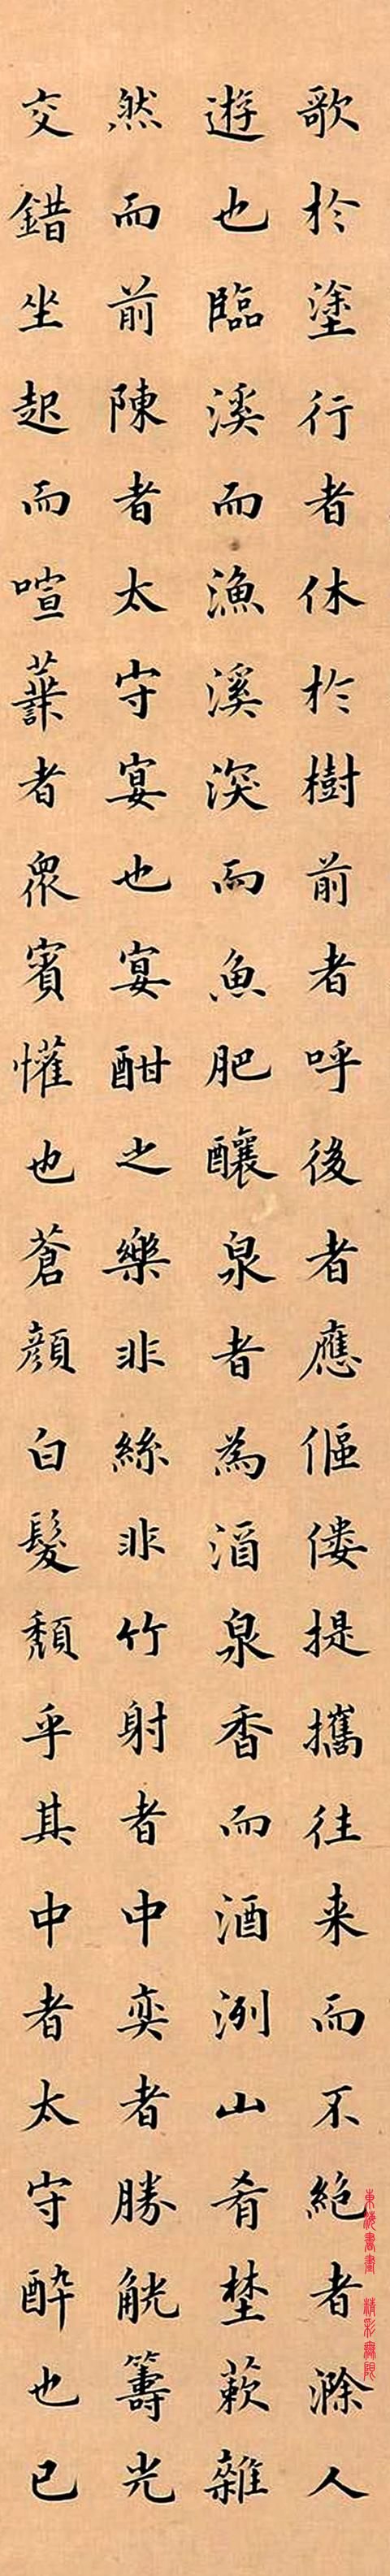 歌於塗行者休於樹前者呼後者應傴僂提攜往来而不絕者滁人
遊也臨溪而漁溪深而魚肥釀泉者為酒泉香而酒洌山肴埜蔌雜
然而前陳者太守宴也宴酣之樂非絲非竹射者中奕者勝觥籌光
交錯坐起而喧譁者眾賓懽也蒼顏白髮頹乎其中者太守醉也已
東海書畫 精彩無限